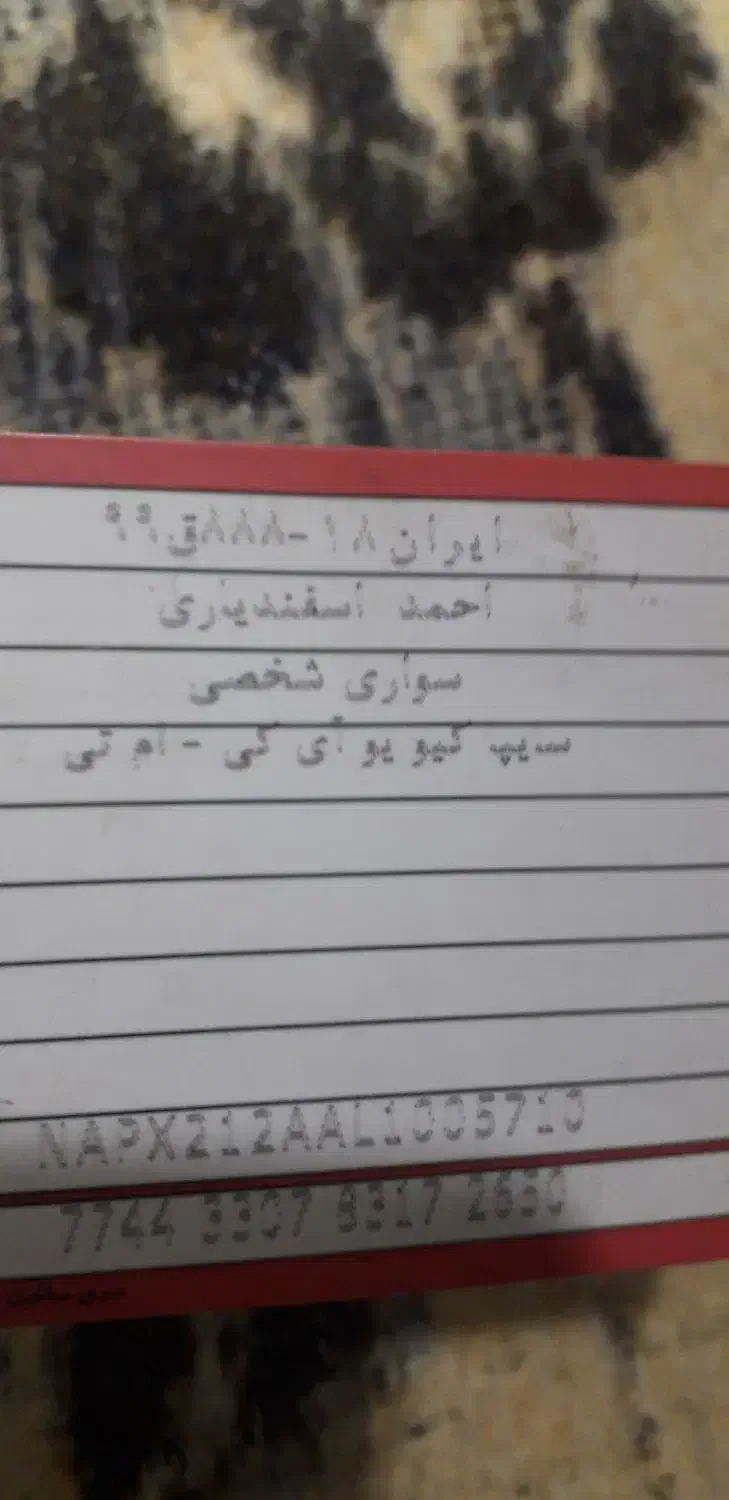 ایران ۱۸-۸۸۸ق۹۹
احمد اسفندیاری
سواری شخصی
سیپ کیو یو آی کی - ام تی
NAPX212AAL1005710
7744 3307 8317 2630
سری ساخت